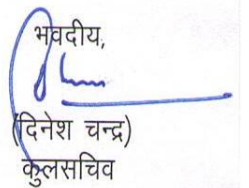 भवदीय,
(दिनेश चन्द्र)
कुलसचिव